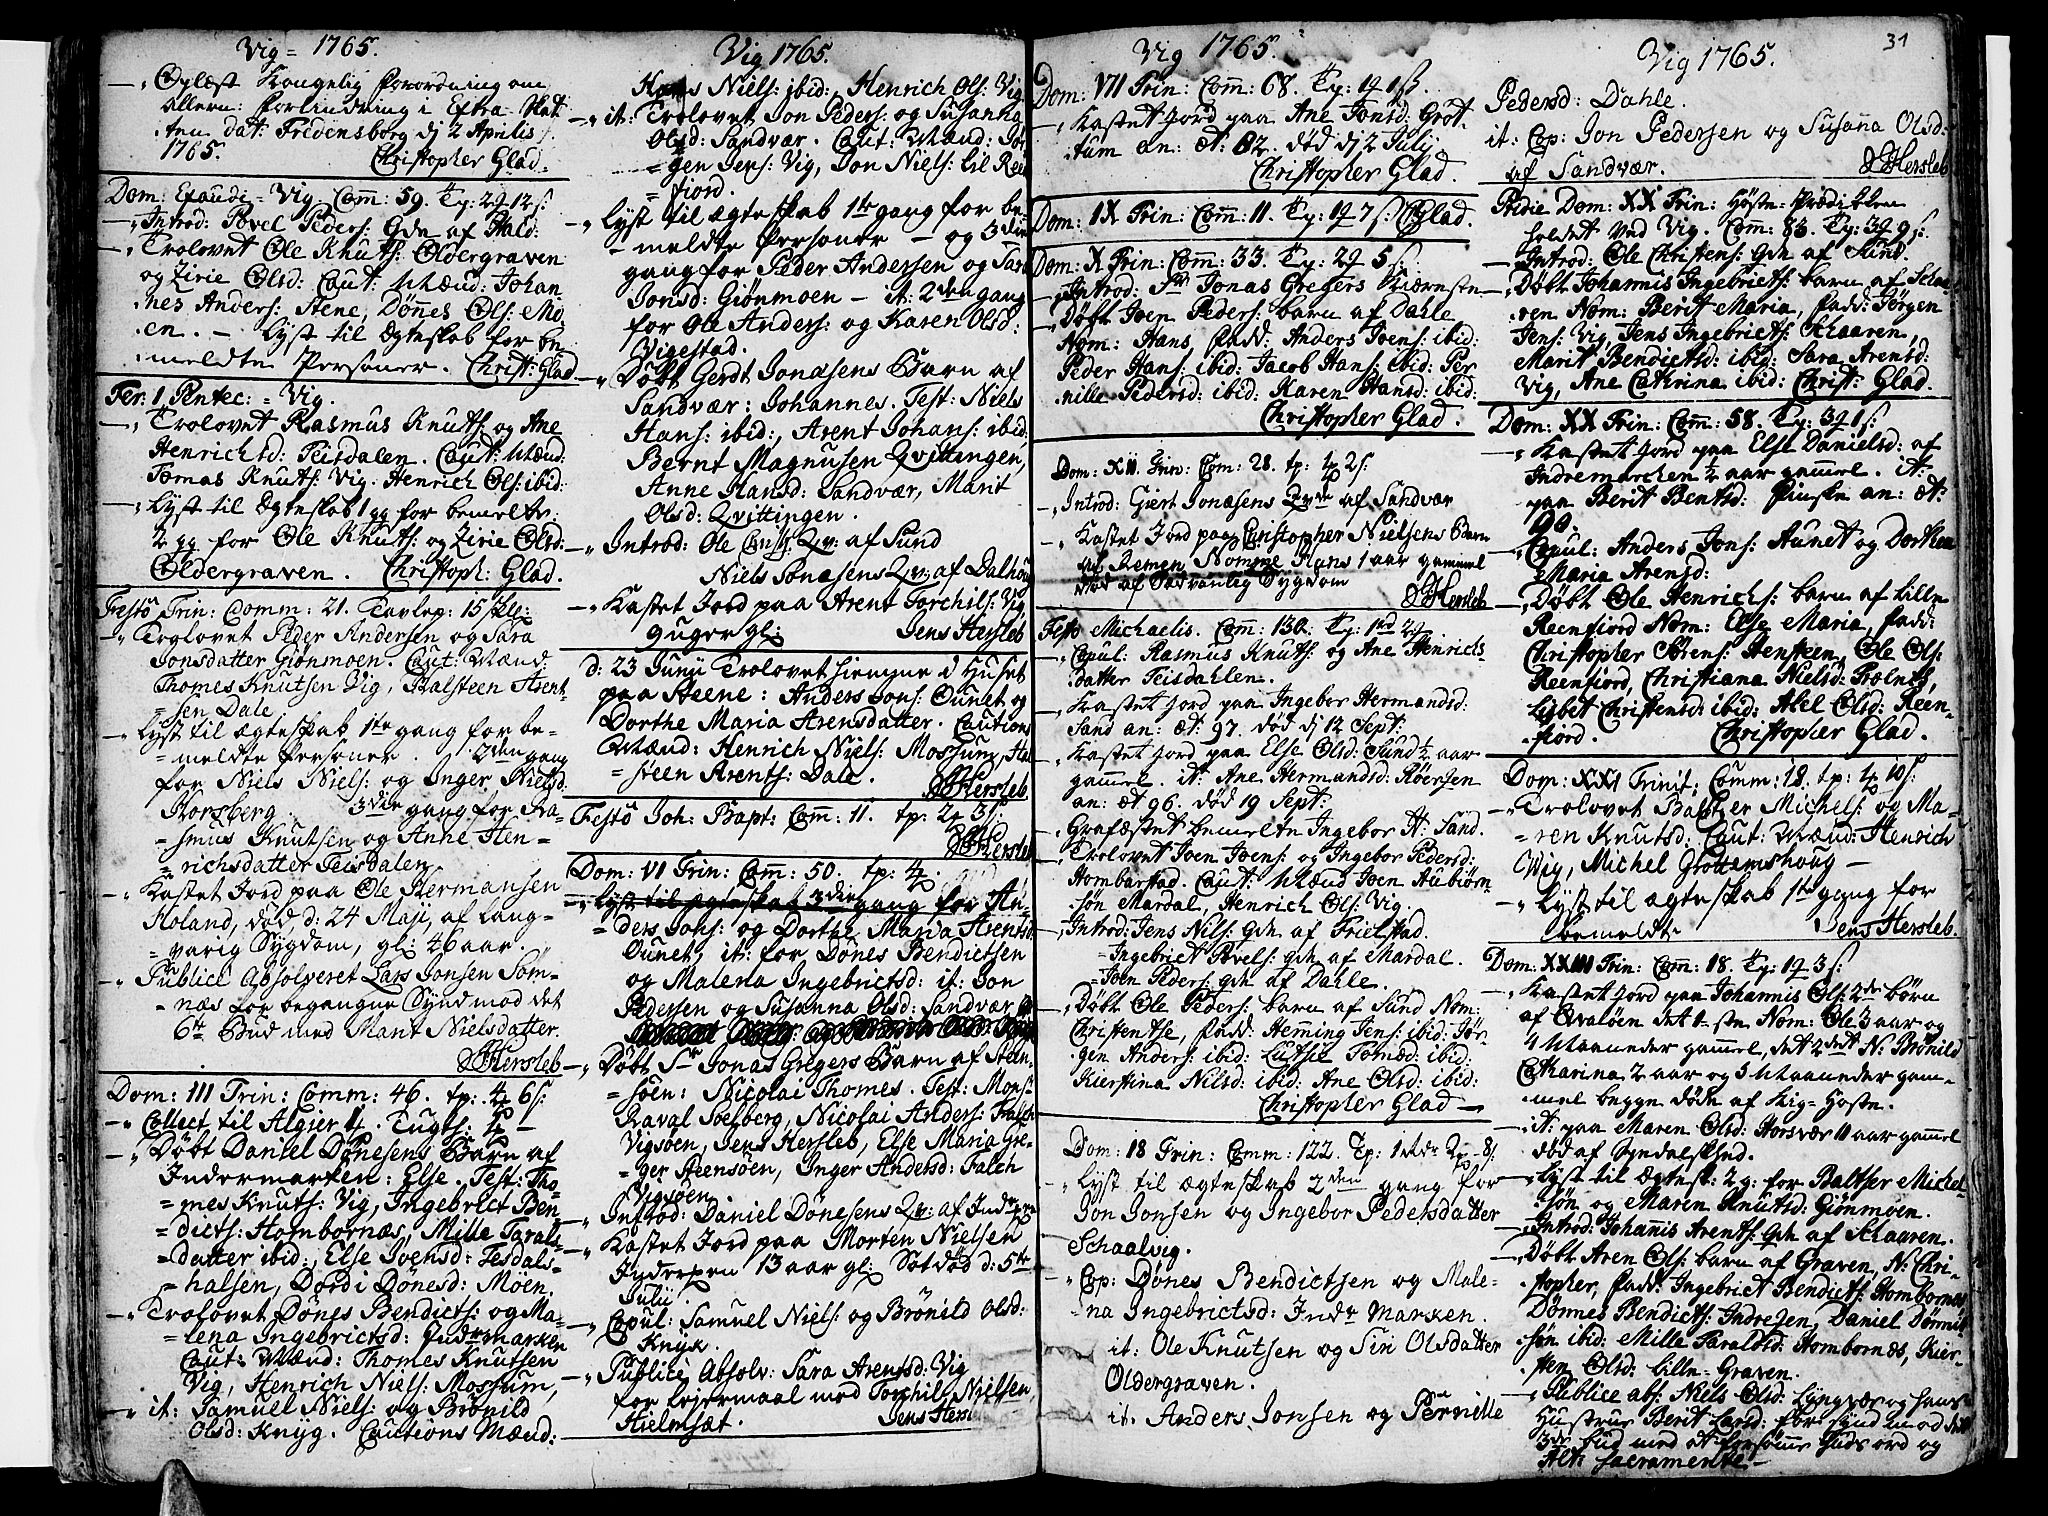 Vig = 1765.
-, Oplæst Kongelig Forordning om
allern: Forlindring i Extra-Skat
ten dat: Fredensborg dj 2 Aprilis
1765.
Christopher Glad.
Dom: Exaudi = Vig Com̄: 59.
-, Introd: Povel Peders:
-, Trolovet Ole Knuts: Oldergraven
og Zirie Olsd: Caut: Mænd: Johan
nes Anders: Stene, Dönnes Ols: Mo
en. - Lyst til Ægteskab for be
meldte Personer. Christ: Glad
Fer: 1. Pentec: = Vig.
-, Trolovet Rasmus Knuts: og Ane
Henrichsd: Teisdalen. Caut: Mænd:
Tomas Knuts: Vig, Henrich Ols: ibid:
-, Lyst til Ægteskab 1 gg for bemelte:
2 gg for Ole Knuts: og Zirie Olsd:
Oldergraven. Christoph: Glad.
Festo Trin: Comm: 21. Tavlep: 15 skl:
-, Trolovet Peder Andersen og Sara
Jonsdatter Giönmoen. Caut: Mænd:
Thomes Knutsen Vig, Balsteen Arent
sen Dale
-, Lyst til ægteskab 1te gang for be-
= meldte Personer. 2den gang
for Niels Niels: og Inger Nielsd:
3die gang for Ra-
= smus Knutsen og Anne Hen-
= richsdatter Teisdalen
-, Kastet Jord paa Ole Hermansen
Holand, död d: 24 Maji, af lang-
= varig Sygdom, gl: 46 aar.
-, Publice Absolveret Lars Jonsen Söm-
= næs for begangne Synd mod det
6te Bud med Marit Nielsdatter.
JHersleb
Dom: III Trin: Comm: 46. tp: 4 6s:
-, Collect til Algier 4. Tugts: 4 -
-, Döbt Daniel Dönesens Barn af
Indermarken: Else. Test: Tho-
= mes Knuts: Vig, Ingebrict Ben-
= dicts: Hombornæs, Mille Tarals-
= datter ibid:, Else Ivensd: Tesdals-
= halsen, Dordi Dönesd: Möen.
-, Trolovet Dönes Bendicts: og Ma-
= lena Ingebrictsd: Indermarken
Caut: Mænd: Thomes Knutsen
Vig, Henrich Niels: Mossum,
-, it: Samuel Niels: og Brönild
Olsd: Knyg. Cautions Mænd:
Vig 1765.
Hans Niels: ibid:, Henrich Ols: Vig.
-, it: Trolovet Jon Peders: og Susanna
Olsd: Sandvær. Caut: Mænd: Jör
gen Jens: Vig, Jon Niels: lil Ree
= fiord.
-, Lyst til ægteskab 1te gang for be-
= meldte Personer - og 3die
gang for Peder Andersen og Sara
Jonsd: Giönmoen - it: 2den gang
for Ole Anders: og Karen Olsd:
Vigestad.
-, Döbt Gerdt Jonæsens Barn af
Sandvær: Johannes. Test: Niels
Hans: ibid:, Arent Johans: ibid:
Bernt Magnusen Qvittingen,
Anne Hansd: Sandvær, Marit
Olsd: Qvittingen.
-, Introd: Ole Qv: af Sund
Niels Jonæsens Qv: af Dalhöug
-, Kastet Jord paa Arent Torchils: Vig
9 uger gl: Jens Hersleb
d: 23 Junii Trolovet hiemme i Huset
paa Steene: Anders Jons: Ounet og
Dorthe Maria Arensdatter. Cautions
Mænd: Henrich Niels: Mossum,
= steen Arents: Dale.
JHersleb
Festo Joh: Bapt: Com̄: 11. tp: 2 3s:
JHersleb
Dom: VI Trin: Com̄: 50. tp: 4.
-, Lyst til ægteskab 3die gang for An-
= ders Johs: og Dorthe Maria Arentsd:
Ounet, it: for Dönes Bendictsen
og Malena Ingebrictsd: it: Jon
Pedersen og Susanna Olsd: Sandvær
-, Döbt Sr Jonas Gregers Barn af Steen-
söen: Nicolai Thomes. Test: Mons:
Raval Soelberg, Nicolai Anders: Falch
Vigsöen, Jens Hersleb, Else Maria Gre-
= ger Steensöen, Inger Andersd: Falch
Vigsöen.
-, Introd: Daniel Dönesens Qv: af Inder
-, Kastet Jord paa Morten Nielsen
13 aar gl: Sotdöd d: 5te
Julii.
-, Copul: Samuel Niels: og Brönild Olsd:
Knyg.
-, Publice Absolv: Sara Arensd: Vig
for Leiermaal med Torchil Nielsen
Hielmsæt. Jens Hersl
Vig 1765.
Dom: VII Trin: Com̄: 68.
-, Kastet Jord paa Ane Jonsd: Grot-
tum an: æt: 82. död dj 2 Julij
Christopher Glad.
Dom: IX Trin: Com̄: 11. CGlad.
Dom: X Trin: Com̄: 33.
-, Introd: Sr Jonas Gregers
-, Döbt Joen Peders: barn af Dahle
Nom: Hans, fadd: Anders Joens: ibid:
Peder Hans: ibid: Jacob Hans: ibid: Per
nille Pedersd: ibid: Karen Hansd: ibid:
Christopher Glad.
Dom: XII. Trin: Com̄: 28. tp: 4 2s:
-, Introd: Giert Jonæsens Qvde af Sandvær
-, Kastet Jord paa Christopher Nielsens Barn
af Remen, Nomme Hans 1 aar gammel
död af Sædvanlig Sygdom
JHersleb
Festo Michaelis. Com̄: 130.
-, Copul: Rasmus Knuts: og Ane Henrichs-
datter Teisdahlen.
-, Kastet Jord paa Ingebor Hermansd:
Sand an: æt: 97. död dj 12 Sept:
-, Kastet Jord paa Else Olsd: Sund ½ aar
gammel. it: Ane Hermansd:
an: æt 96. död 19 Sept:
-, Grafæstet bemelte Ingebor H: Sand.
-, Trolovet Joen Joens: og Ingebor Pedersd:
Hombarstad. Caut: Mænd Joen Aubiörn
sön Mardal, Henrich Ols: Vig.
-, Introd: Jens Nils: qde af Frielstad.
= Ingebrict Povels: qde af Mardal.
= Joen Peders: qde af Dahle.
-, Döbt Ole Peders: barn af Sund Nom:
Christense, fadd: Hemming Jens: ibid: Jör
gen Anders: ibid: Lutsie Tomæd: ibid:
Kierstina Nilsd: ibid: Ane Olsd: ibid:
Christopher Glad -
Dom: 18 Trin: Comm: 122.
-, Lyst til ægteskab 2den gang for
Jon Jonsen og Ingebor Pedersdatter
Schaalvig.
-, Cop: Dönes Bendictsen og Male-
na Ingebrictsd: Indr Marken.
it: Ole Knutsen og Siri Olsdatter
Oldergraven.
it: Anders Jonsen og Pernille
Vig 1765.
31
Pedersd: Dahle.
it: Cop: Jon Pedersen og Susana Olsd:
af Sandvær. JHersleb
Pridie Dom: XX Trin: Höste-Prædiken
holdet ved Vig. Com̄: 83.
-, Introd: Ole Christens: qde af Sund.
-, Döbt Johannis Ingebricts: barn af Scha
ren Nom: Berit Maria, fadd: Jörgen
Jens: Vig, Jens Ingebricts: Skaaren,
Marit Bendictsd: ibid: Sara Arensd:
Vig, Ane Cathrina ibid: Christ: Glad.
Dom: XX Trin: Com̄: 58.
-, Kastet Jord paa Else Danielsd: af
Indremarchen ½ aar gammel. it:
paa Berit Bentsd: an: æt:
-, Copul: Anders Jons: Aunet og Dorthea
Maria Arensd:
-, Döbt Ole Henrichs: barn af Lille
Reenfiord Nom: Else Maria, fadd:
Christopher Sörens: Hensteen, Ole Ols:
Reenfiord, Christiana Nielsd:
Lisbet Christensd: ibid: Alel Olsd: Reen-
fiord. Christopher Glad.
Dom: XXI Trinit: Comm: 18. tp: 4 10s:
-, Trolovet Baltzer Michels: og Ma-
= ren Knutsd: Caut: Mænd: Henrich
Wig, Michel Grottemshaag -
-, Lyst til ægteskab 1te gang for
bemeldte Jens Hersleb.
Dom: XXIII Trin: Com̄: 18.
-, Kastet Jord paa Johannis Ols: 2de börn
af Qvalöen det 1-ste Nom: Ole 3 aar og
4 Maaneder gammel, det 2det N: Brönild
Catharina 2 aar og 3 Maaneder gam-
mel begge döde af Kig-Hoste.
-, it: paa Maren Olsd: Horsvær 11 aar gammel
död af
-, Lyst til Ægtesk: 2 g: for Baltser Michel
sön og Maren Knutsd: Giönmoen.
-, Introd: Johannis Arents: qde af Skaaren.
-, Döbt Aren Ols: barn af Graven, N: Chri-
stopher, fadd: Ingebrict Bendicts: Hombornes,
Dönnes Bendicts: Daniel Dönni
sön ibid: Mille Taraldsd: Hombornæs, Kier-
sten Olsd: Lille-Graven.
-, Publice abs: Niels Olsd: Lyngvær og hans
Hustrue Berit Larsd: for synd mod det
3die bud med at forsömme Guds ord og
Alt: Sacramente -